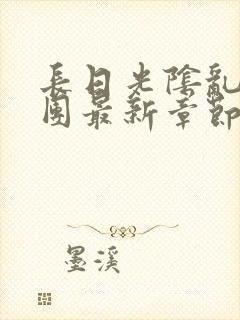 長日光陰亂
團最新章節
墨溪